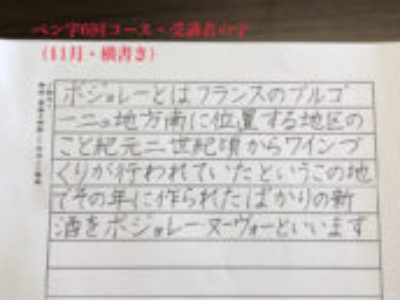 ペン字6回コース・受講者の字
(11月・横書き)
ボジョレーとはフランスのブルゴ
ーニュ地方南に位置する地区の
こと紀元二世紀頃からワインづ
くりが行われていたというこの地
でその年に作られたばかりの新
酒をボジョレー・ヌーヴォーといいます